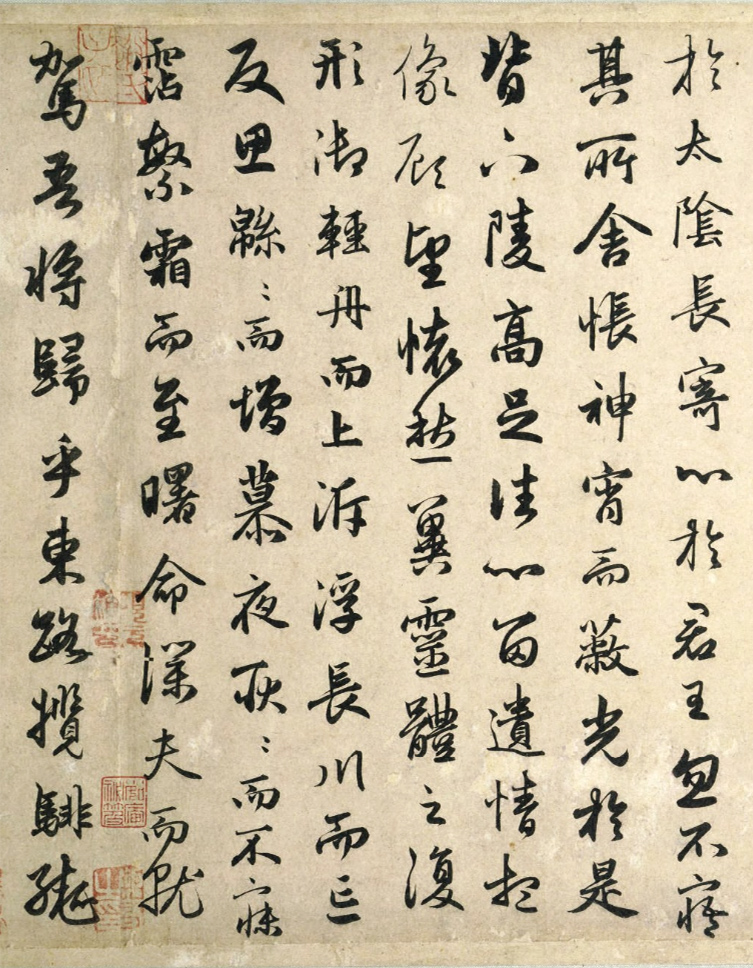 於太陰長寄心於君王忽不寤
其所舍悵神宵而蔽光於是
背下陵高足往心留遺情想
像顧望懷愁冀靈體之復
形御輕舟而上泝浮長川而忘
反思緜々而增慕夜耿々而不寐
霑繁霜而至曙命僕夫而就
駕吾將歸乎東路攬騑轡